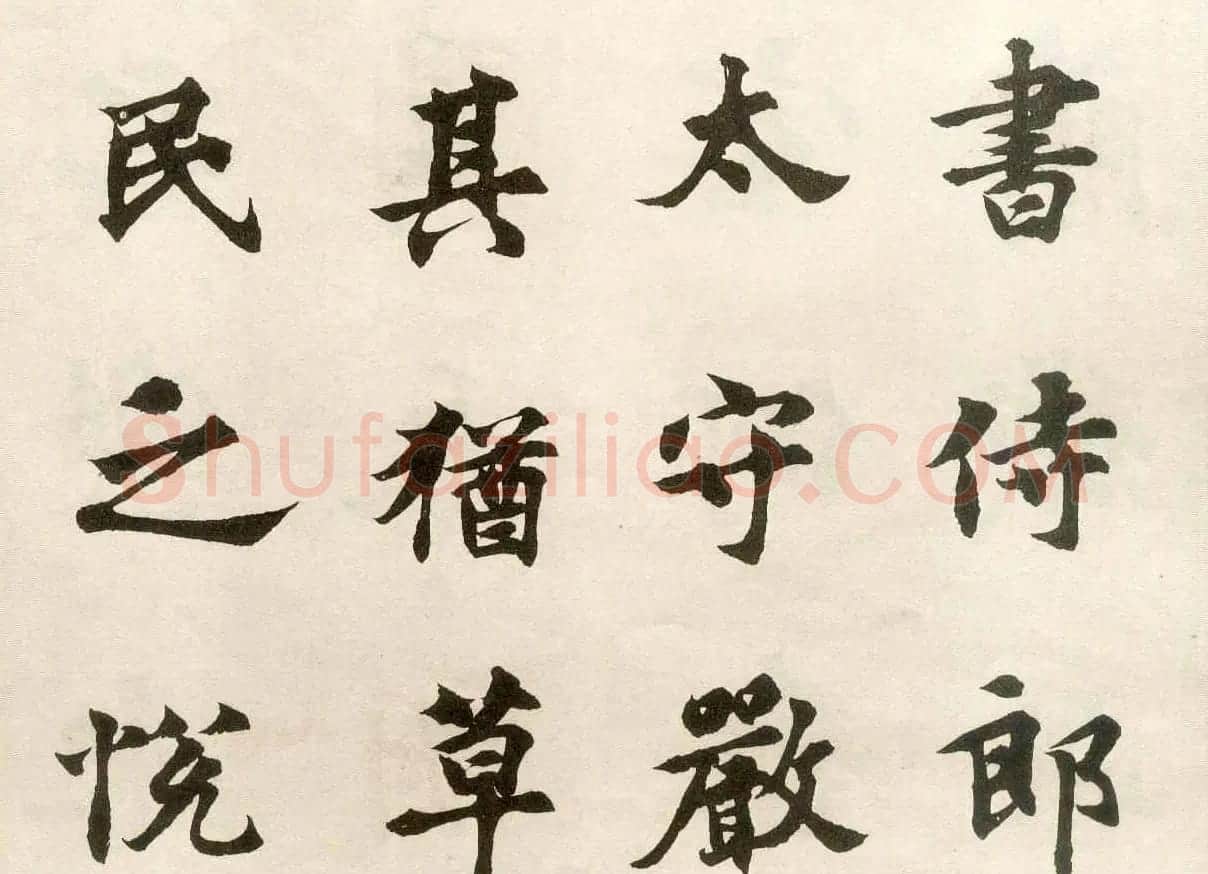 書侍郎
太守嚴
其猶草
民之悅
Shufaziliao.COM